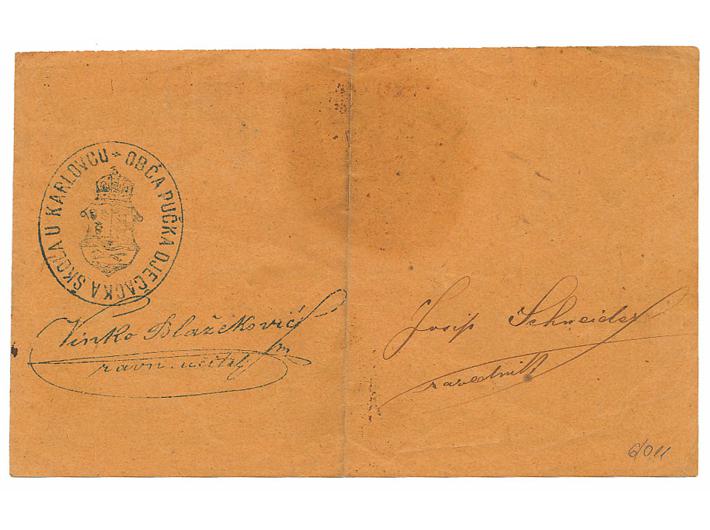 OBĆA PUČKA DJEČAČKA ŠKOLA U KARLOVCU
Vinko Blažeković
ravn. učitelj
Josip Schneider
razrednik